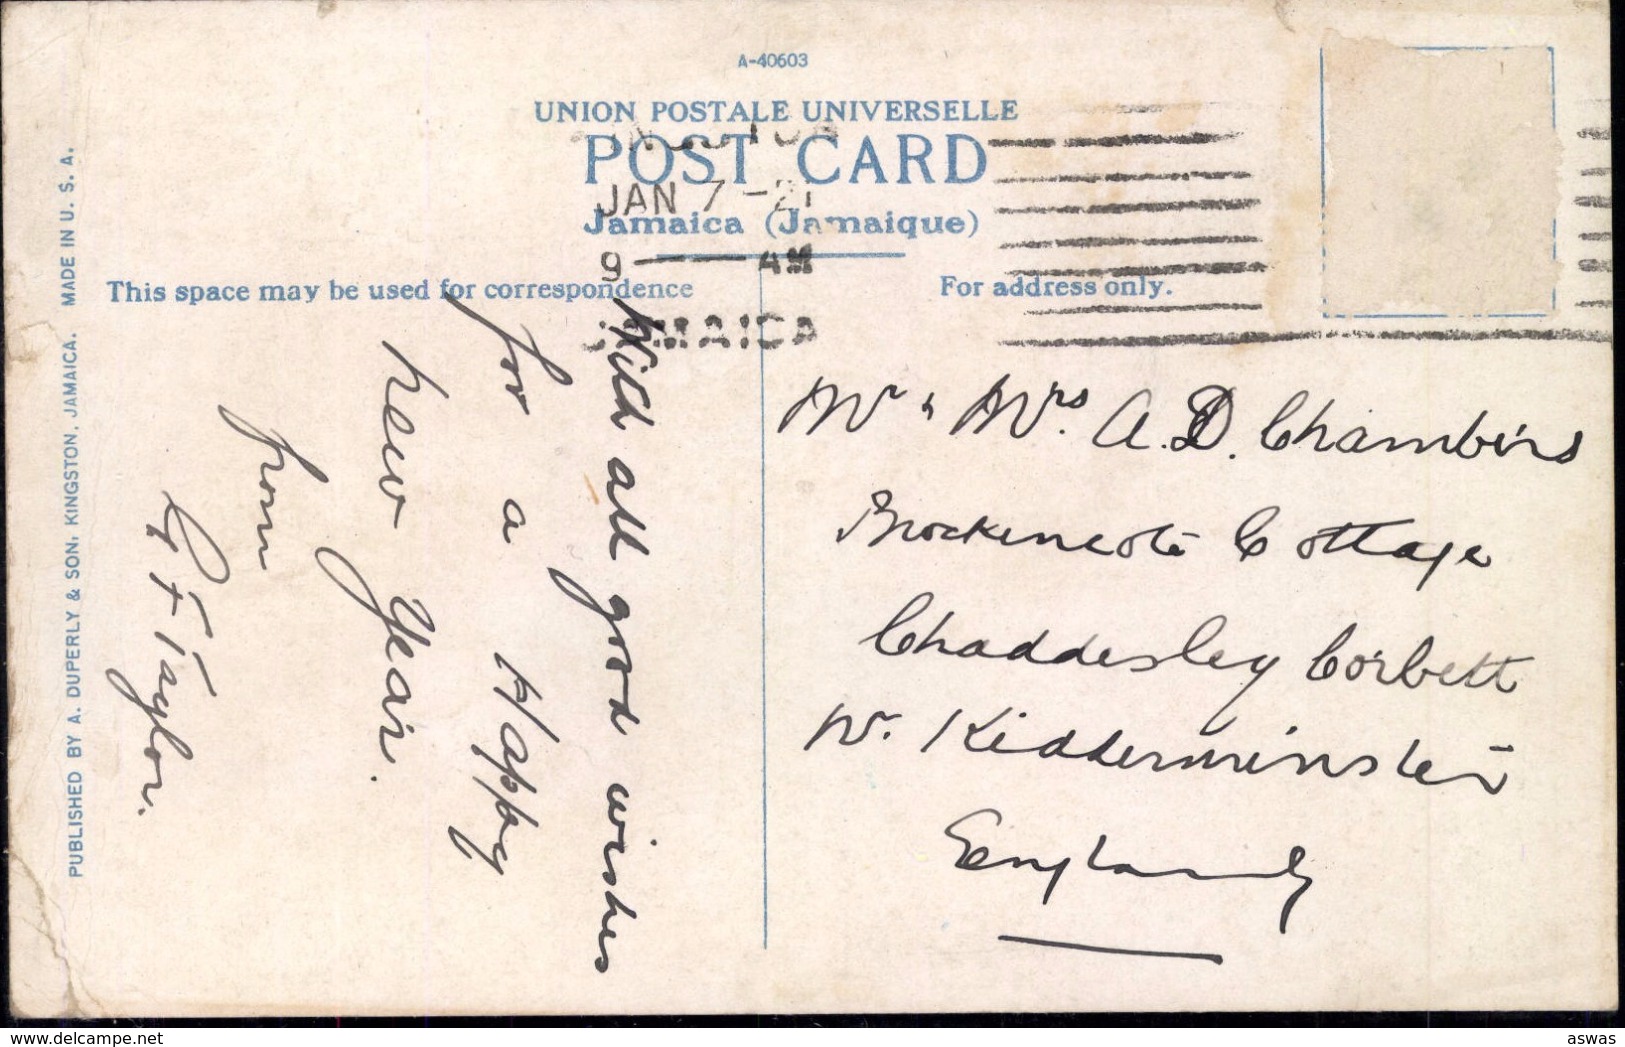 A-40603
UNION POSTALE UNIVERSELLE
POST CARD
JAN 7 -21
Jamaica (Jamaique)
9 AM
This space may be used for correspondence
For address only.
JAMAICA
With all good wishes
for a Happy
New Year.
from
G F Taylor.
Mr & Mrs. A.D. Chambers
Brockencote Cottage
Chaddesley Corbett
Nr. Kidderminster
England
PUBLISHED BY A. DUPERLY & SON, KINGSTON, JAMAICA. MADE IN U. S. A.
delcampe.net
aswas